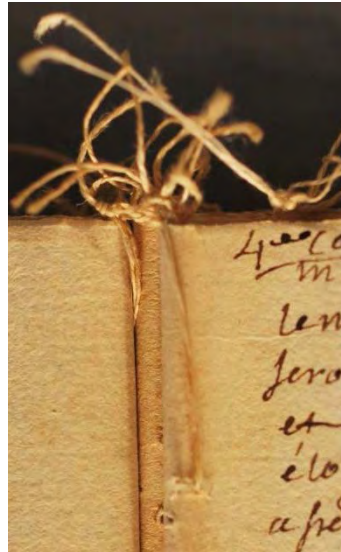 4me Ca
m
len
sero
et
élo
a fre